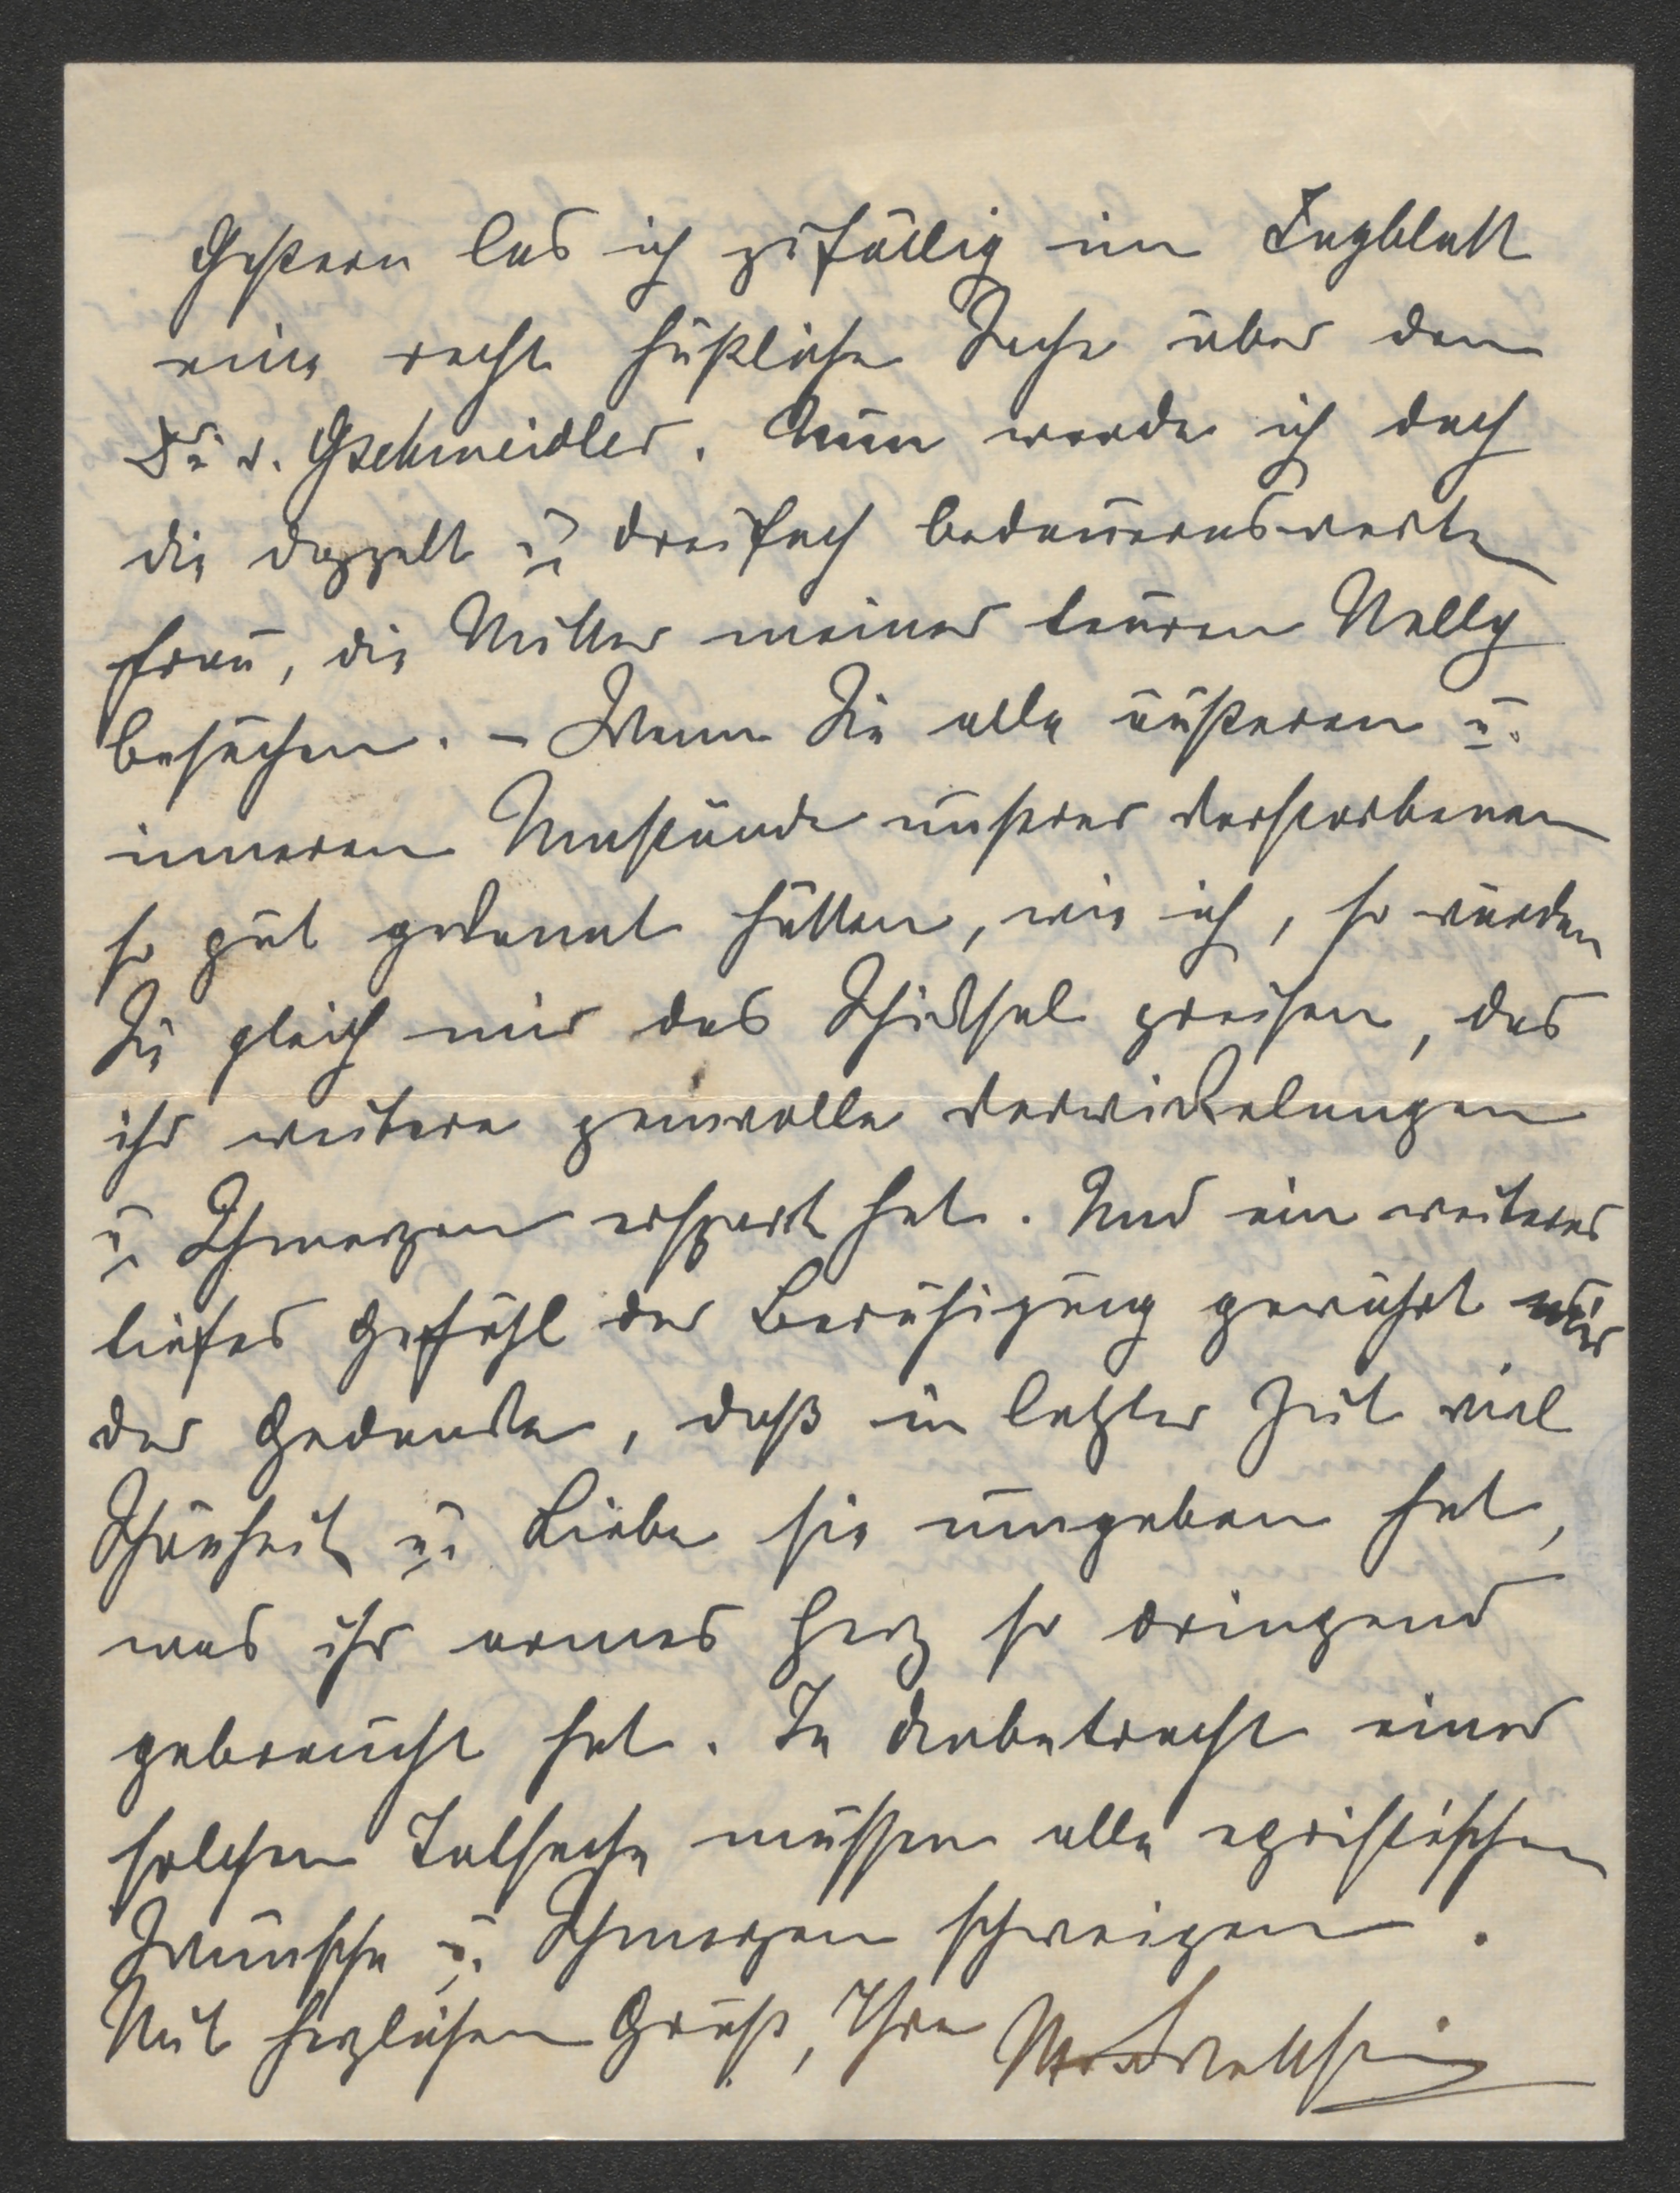 Gestern las ich zufällig im Tagblatt
eine recht häßliche Sache über den
Dr v. Gschmeidler. Nun werde ich doch
die doppelt u. dreifach bedauernswerte
Frau, die Mutter meiner teuren Nelly
besuchen. – Wenn Sie alle äußeren u.
inneren Umstände unserer Verstorbenen
so gut gekannt hätten, wie ich, so würden
Sie gleich mir das Schicksal preisen, das
ihr weitere peinvolle Verwickelungen
u. Schmerzen erspart hat. Und ein weiteres
tiefes Gefühl der Beruhigung gewährt mir
der Gedanke, daß in letzter Zeit viel
Schönheit u. Liebe sie umgeben hat,
was ihr armes Herz so dringend
gebraucht hat. In Anbetracht einer
solchen Tatsache müssen alle egoistischen
Wünsche u. Schmerzen schweigen.
Mit herzlichem Gruß, Ihre